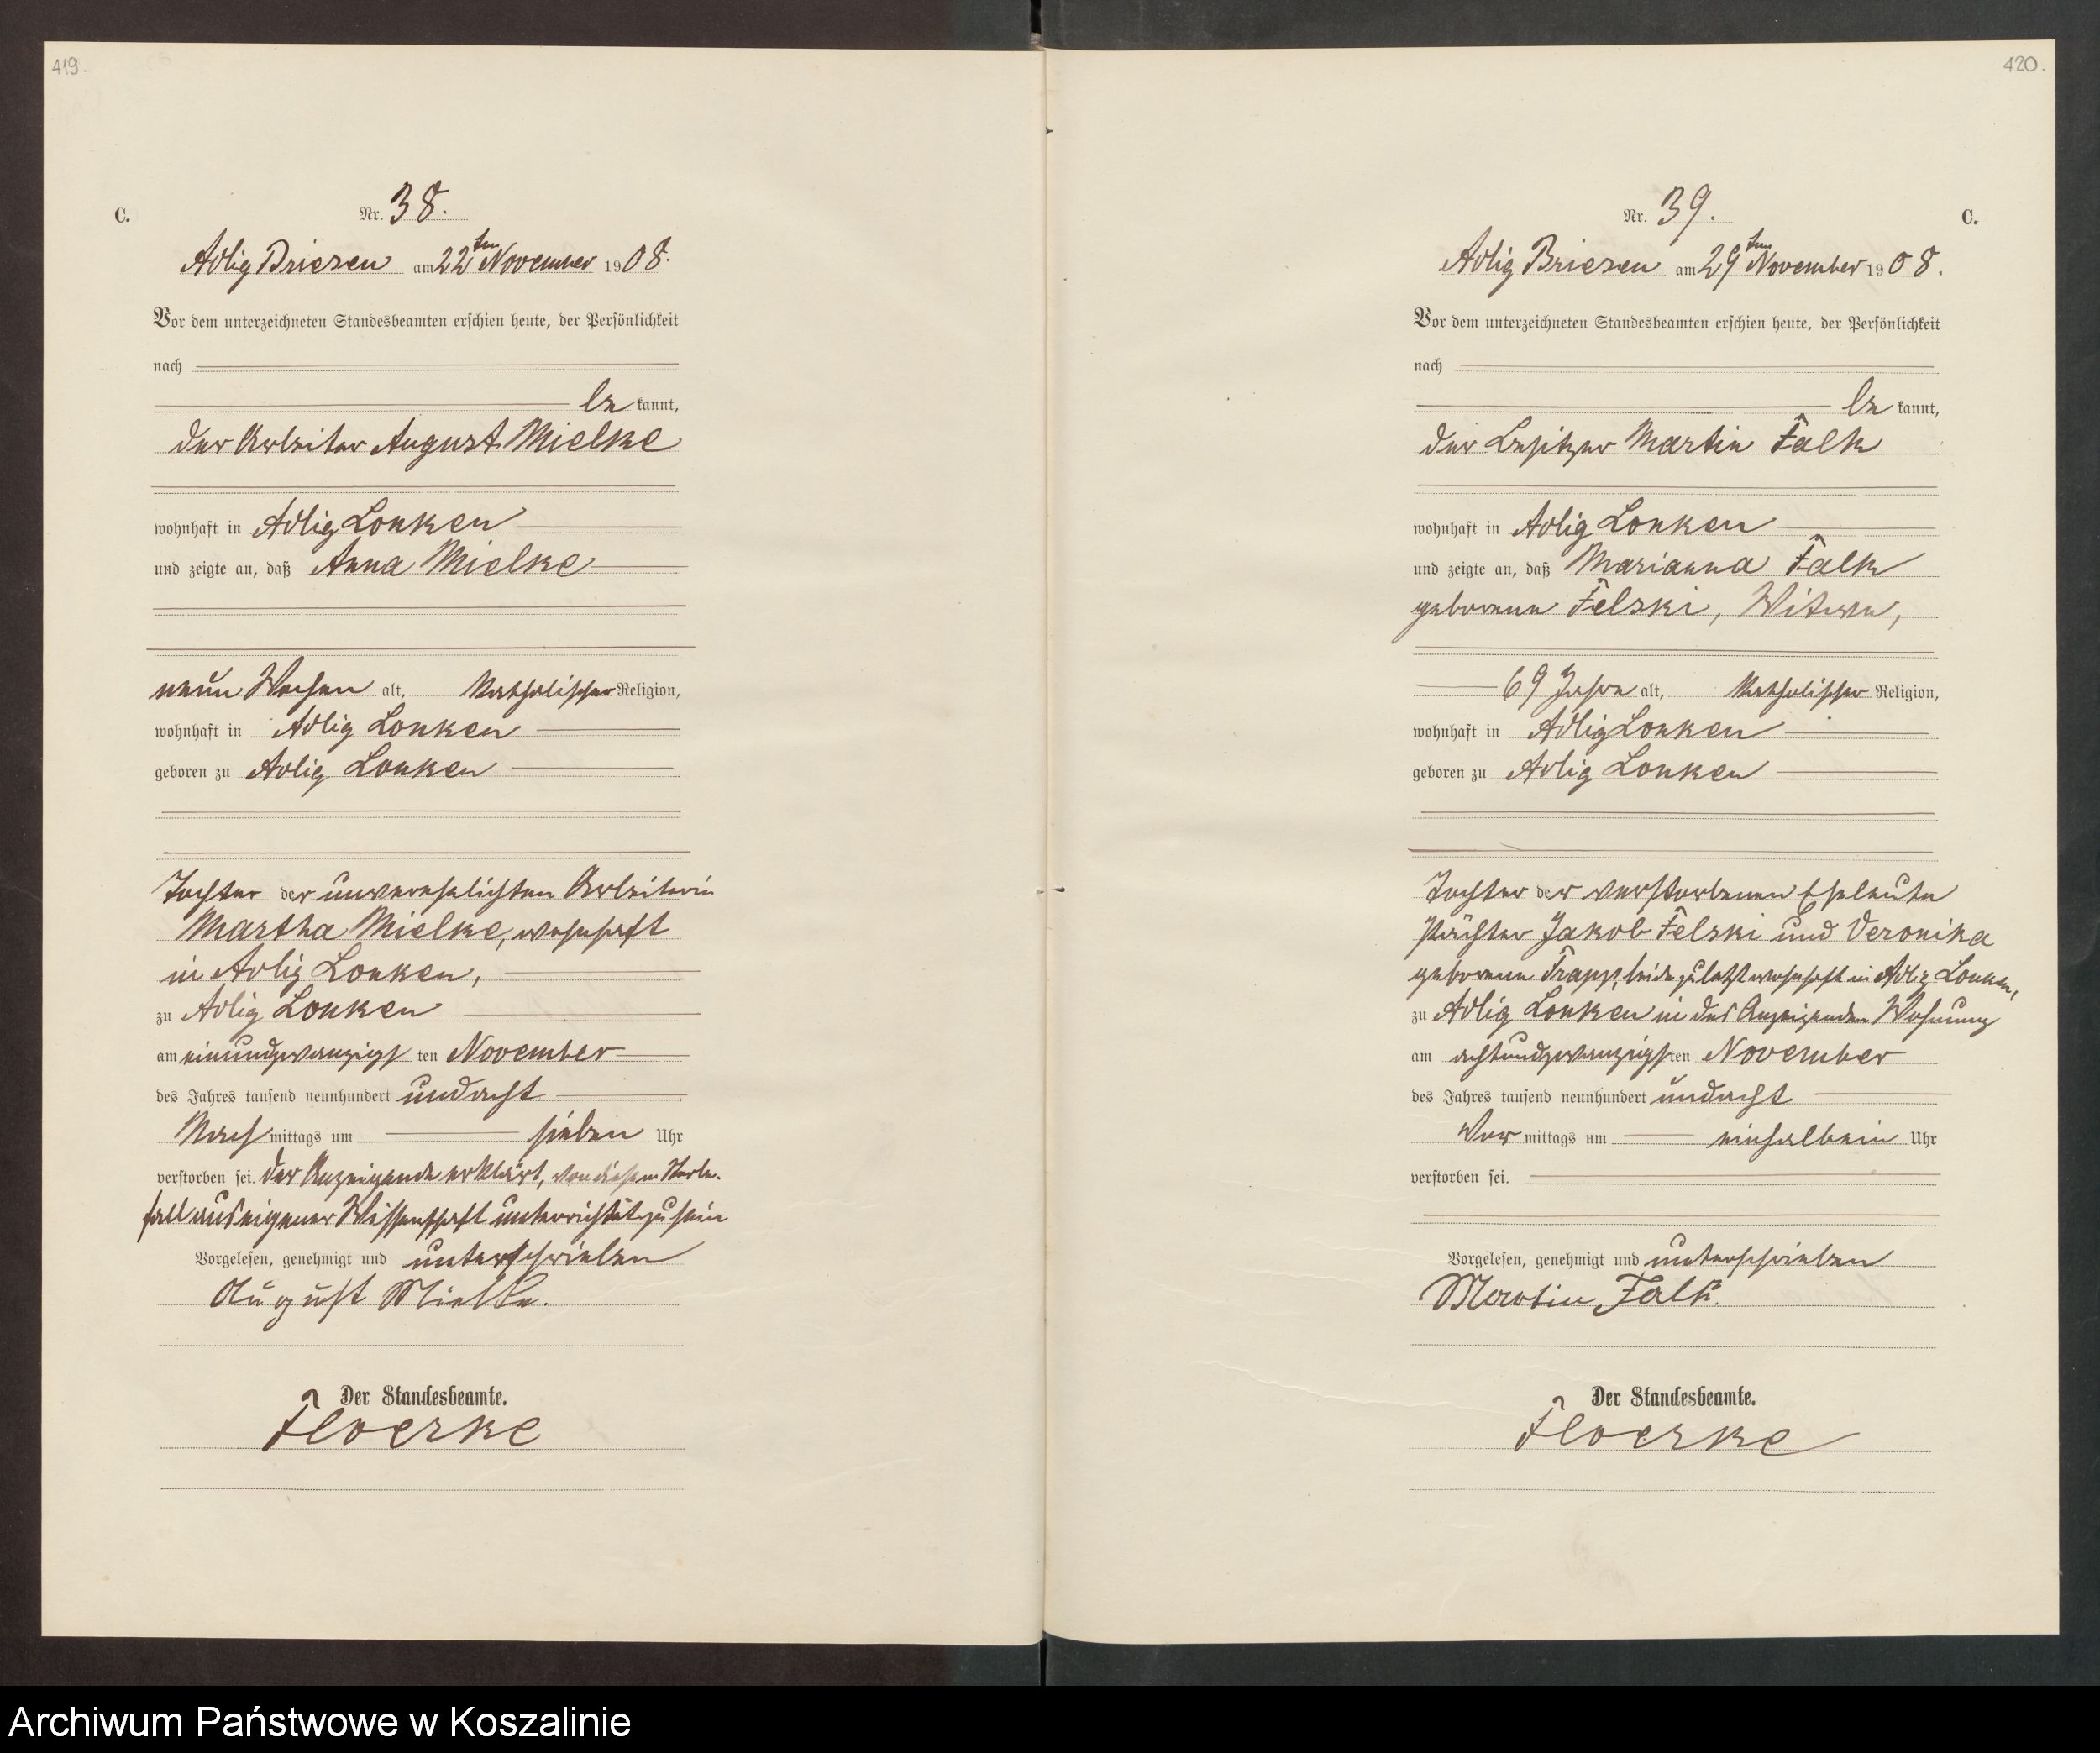 419.
C.
Nr. 38.
Adlig Briesen am 22ten November 1908.
Vor dem unterzeichneten Standesbeamten erschien heute, der Persönlichkeit
nach
be kannt,
der Arbeiter August Mielke
wohnhaft in Adlig Lonken
und zeigte an, daß Anna Mielke
neun Wochen alt, katholischer Religion,
wohnhaft in Adlig Lonken
geboren zu Adlig Lonken
Tochter der unverehelichten Arbeiterin
Martha Mielke, wohnhaft
in Adlig Lonken,
zu Adlig Lonken
am einundzwanzigsten November
des Jahres tausend neunhundert und acht
Nach mittags um sieben Uhr
verstorben sei. Der Anzeigende erklärt, von diesem Sterbe-
fall aus eigener Wissenschaft unterrichtet zu sein
Vorgelesen, genehmigt und unterschrieben
August Mielke.
Der Standesbeamte.
Floerke
420.
Nr. 39.
C.
Adlig Briesen am 29ten November 1908.
Vor dem unterzeichneten Standesbeamten erschien heute, der Persönlichkeit
nach
be kannt,
der Besitzer Martin Falk
wohnhaft in Adlig Lonken
und zeigte an, daß Marianna Falk
geborene Felski, Witwe,
69 Jahre alt, katholischer Religion,
wohnhaft in Adlig Lonken
geboren zu Adlig Lonken
Tochter der verstorbenen Eheleute
Pächter Jakob Felski und Veronika
geborene Trapp, beide zuletzt wohnhaft in Adlig Lonken,
zu Adlig Lonken in des Anzeigenden Wohnung
am achtundzwanzigsten November
des Jahres tausend neunhundert und acht
Vor mittags um einhalbein Uhr
verstorben sei.
Vorgelesen, genehmigt und unterschrieben
Martin Falk.
Der Standesbeamte.
Floerke
Archiwum Państwowe w Koszalinie